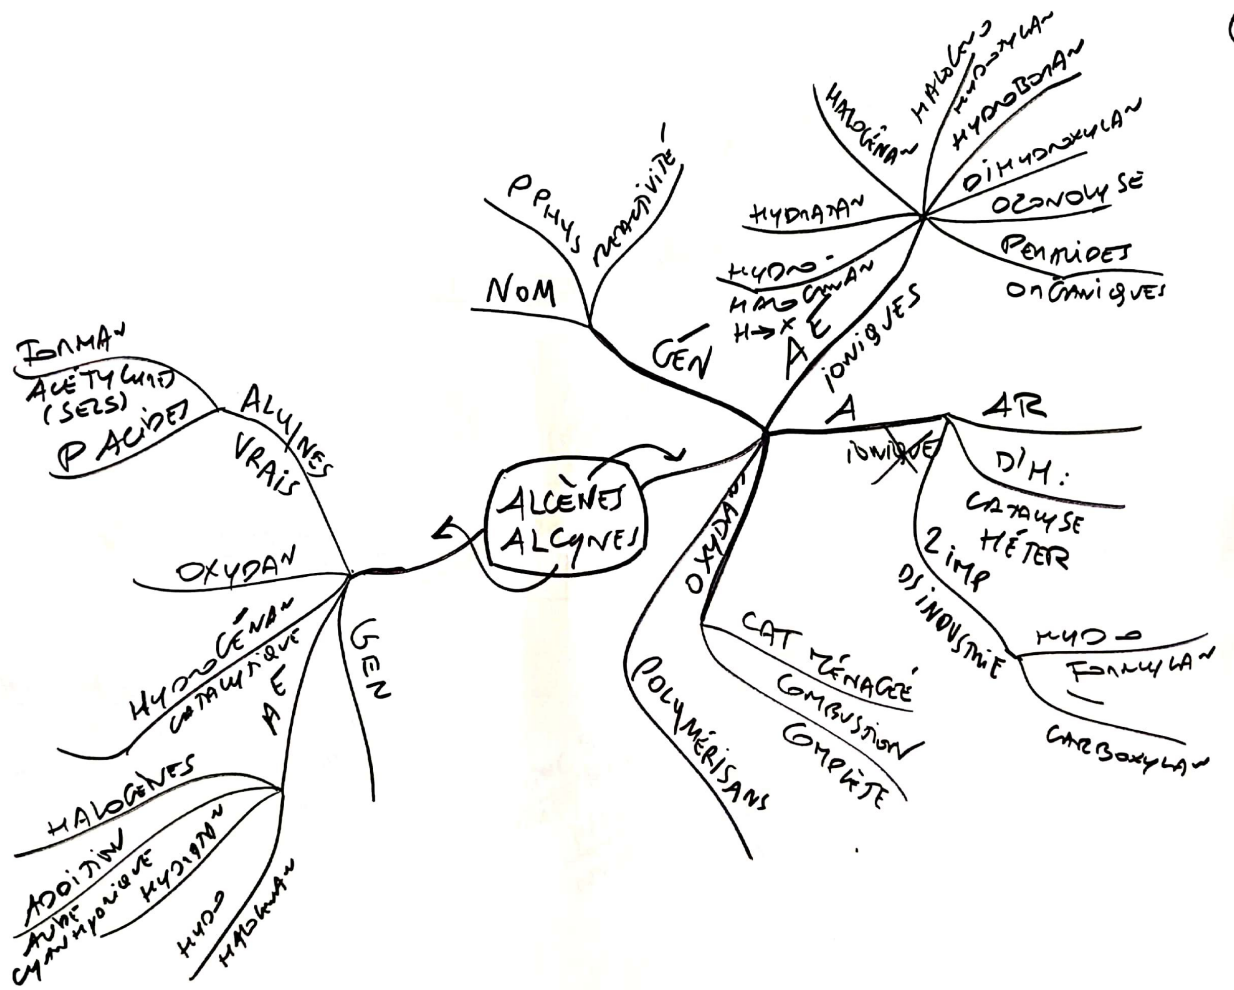 ALCÈNES
ALCYNES
GÉN
NOM
PPHYS
RÉACTIVITÉ
AÉ
IONIQUES
HYDRO-
HALOGÉNAN
H→X
HYDRATAN
HALOGÉNAN
HALOGÉNO
HYDROXYLAN
HYDROBORAN
DIHYDROXYLAN
OZONOLYSE
PERACIDES
ORGANIQUES
A
IONIQUE
AR
D'H:
CATALYSE
HÉTER
2 IMP
DS INDUSTRIE
HYDRO
FORMYLAN
CARBOXYLAN
OXYDANS
CAT MÉNAGÉE
COMBUSTION
COMPLÈTE
POLYMÉRISANS
ALCYNES
VRAIS
FORMAN
ACÉTYLURES
(SELS)
P ACIDES
OXYDAN
HYDROGÉNAN
CATALYTIQUE
AE
HALOGÈNES
ADDITION
ACIDE
CYANHYDRIQUE
HYDRATAN
HYDRO
HALOGÉNAN
GEN